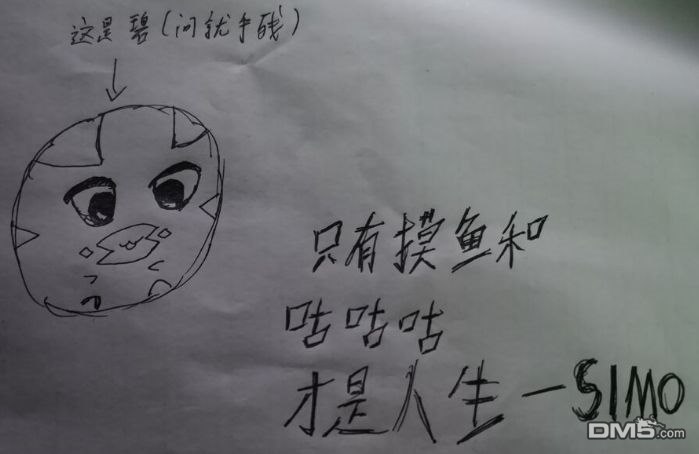 这是碧(问就手残)
只有摸鱼和
咕咕咕
才是人生—SIMO
DM5.com